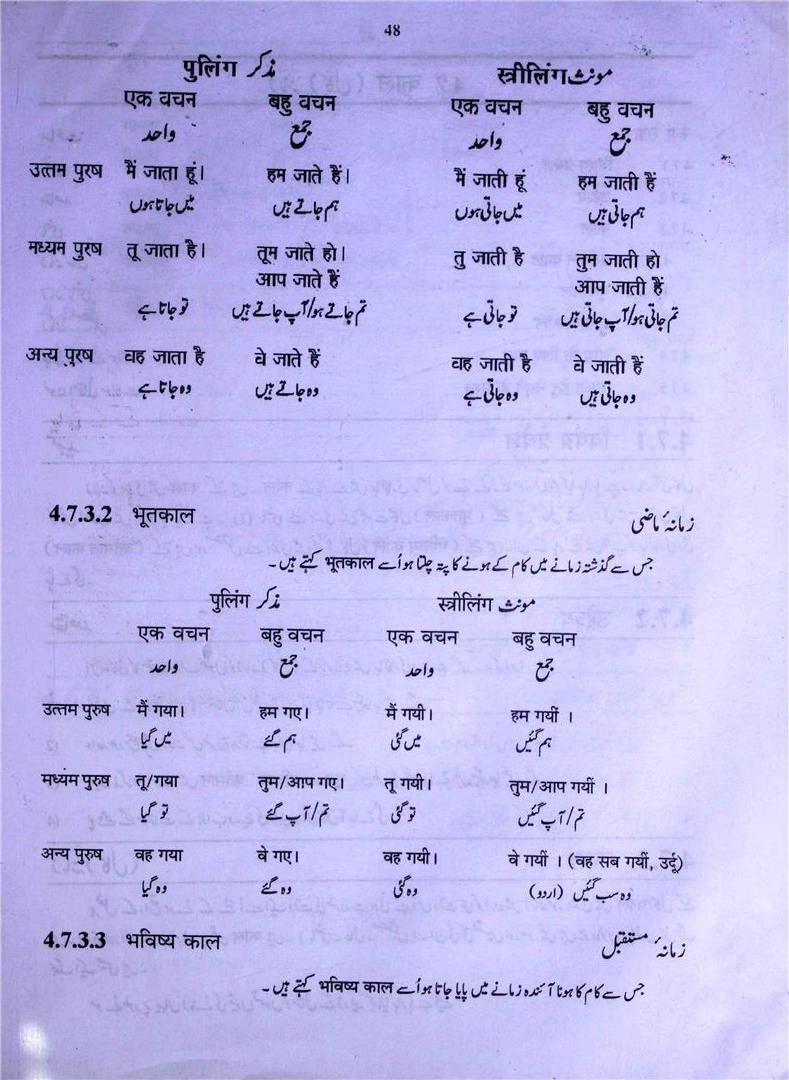 48
पुलिंग مذکر स्त्रीलिंग مونث
एक वचन बहु वचन एक वचन बहु वचन
واحد جمع واحد جمع
उत्तम पुरष मैं जाता हूं। हम जाते हैं। मैं जाती हूं हम जाती हैं
میں جاتا ہوں ہم جاتے ہیں میں جاتی ہوں ہم جاتی ہیں
मध्यम पुरष तू जाता है। तूम जाते हो। तु जाती है तुम जाती हो
आप जाते हैं आप जाती हैं
تو جاتا ہے تم جاتے ہو/آپ جاتے ہیں تو جاتی ہے تم جاتی ہو/آپ جاتی ہیں
अन्य पुरष वह जाता है वे जाते हैं वह जाती है वे जाती हैं
وہ جاتا ہے وہ جاتے ہیں وہ جاتی ہے وہ جاتی ہیں
4.7.3.2 भूतकाल زمانۂ ماضی
جس سے گذشتہ زمانے میں کام کے ہونے کا پتہ چلتا ہو اُسے भूतकाल کہتے ہیں۔
पुलिंग مذکر स्त्रीलिंग مونث
एक वचन बहु वचन एक वचन बहु वचन
واحد جمع واحد جمع
उत्तम पुरुष मैं गया। हम गए। मैं गयी। हम गयीं ।
میں گیا ہم گئے میں گئی ہم گئیں
मध्यम पुरुष तू/गया तुम/आप गए। तू गयी। तुम/आप गयीं ।
تو گیا تم/آپ گئے تو گئی تم/آپ گئیں
अन्य पुरुष वह गया वे गए। वह गयी। वे गयीं । (वह सब गयीं, उर्दू)
وہ گیا وہ گئے وہ گئی وہ سب گئیں (اردو)
4.7.3.3 भविष्य काल زمانۂ مستقبل
جس سے کام کا ہونا آئندہ زمانے میں پایا جاتا ہو اُسے भविष्य काल کہتے ہیں۔